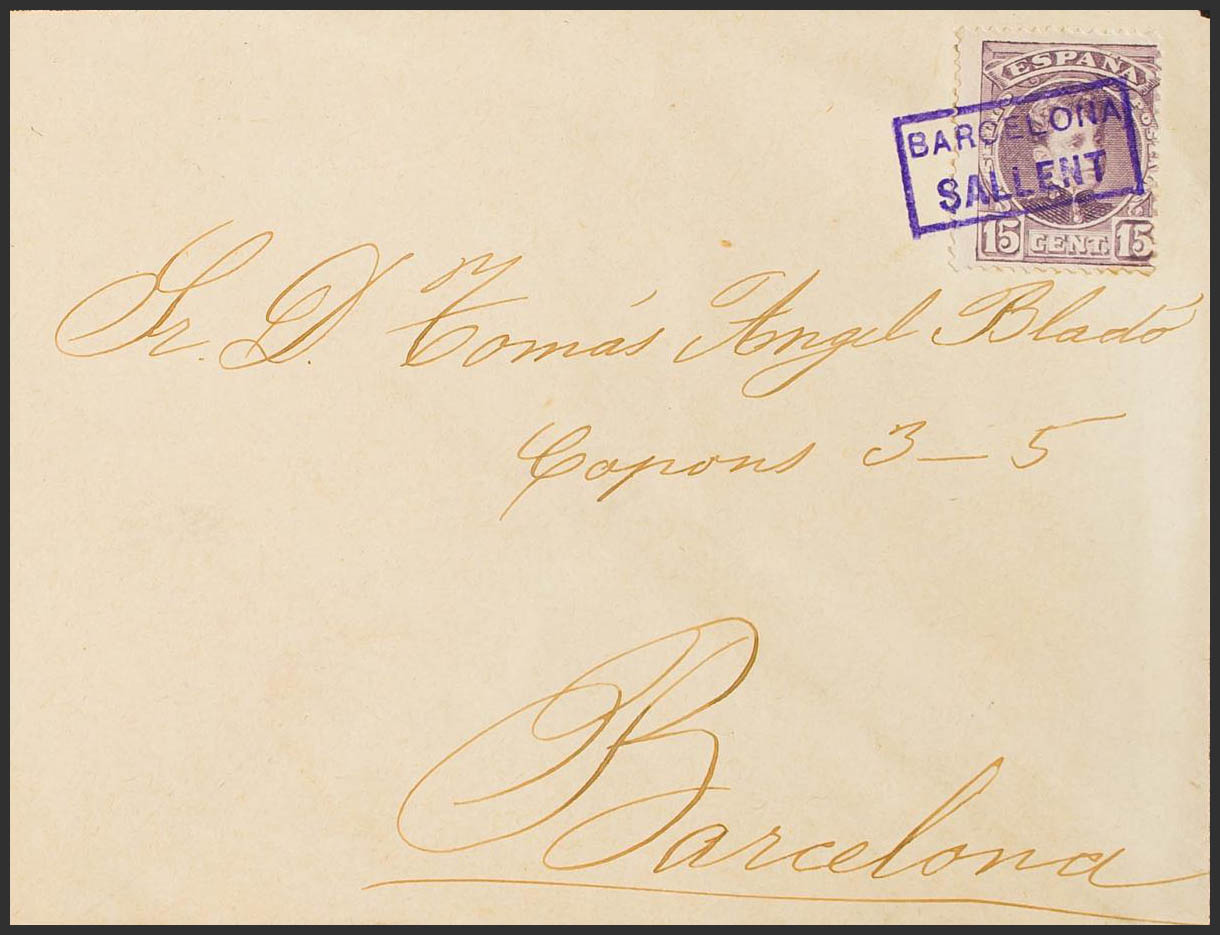 ESPAÑA
BARCELONA
SALLENT
15 CENT. 15
Sr. D. Tomás Angel Bladó
Copons 3 — 5
Barcelona